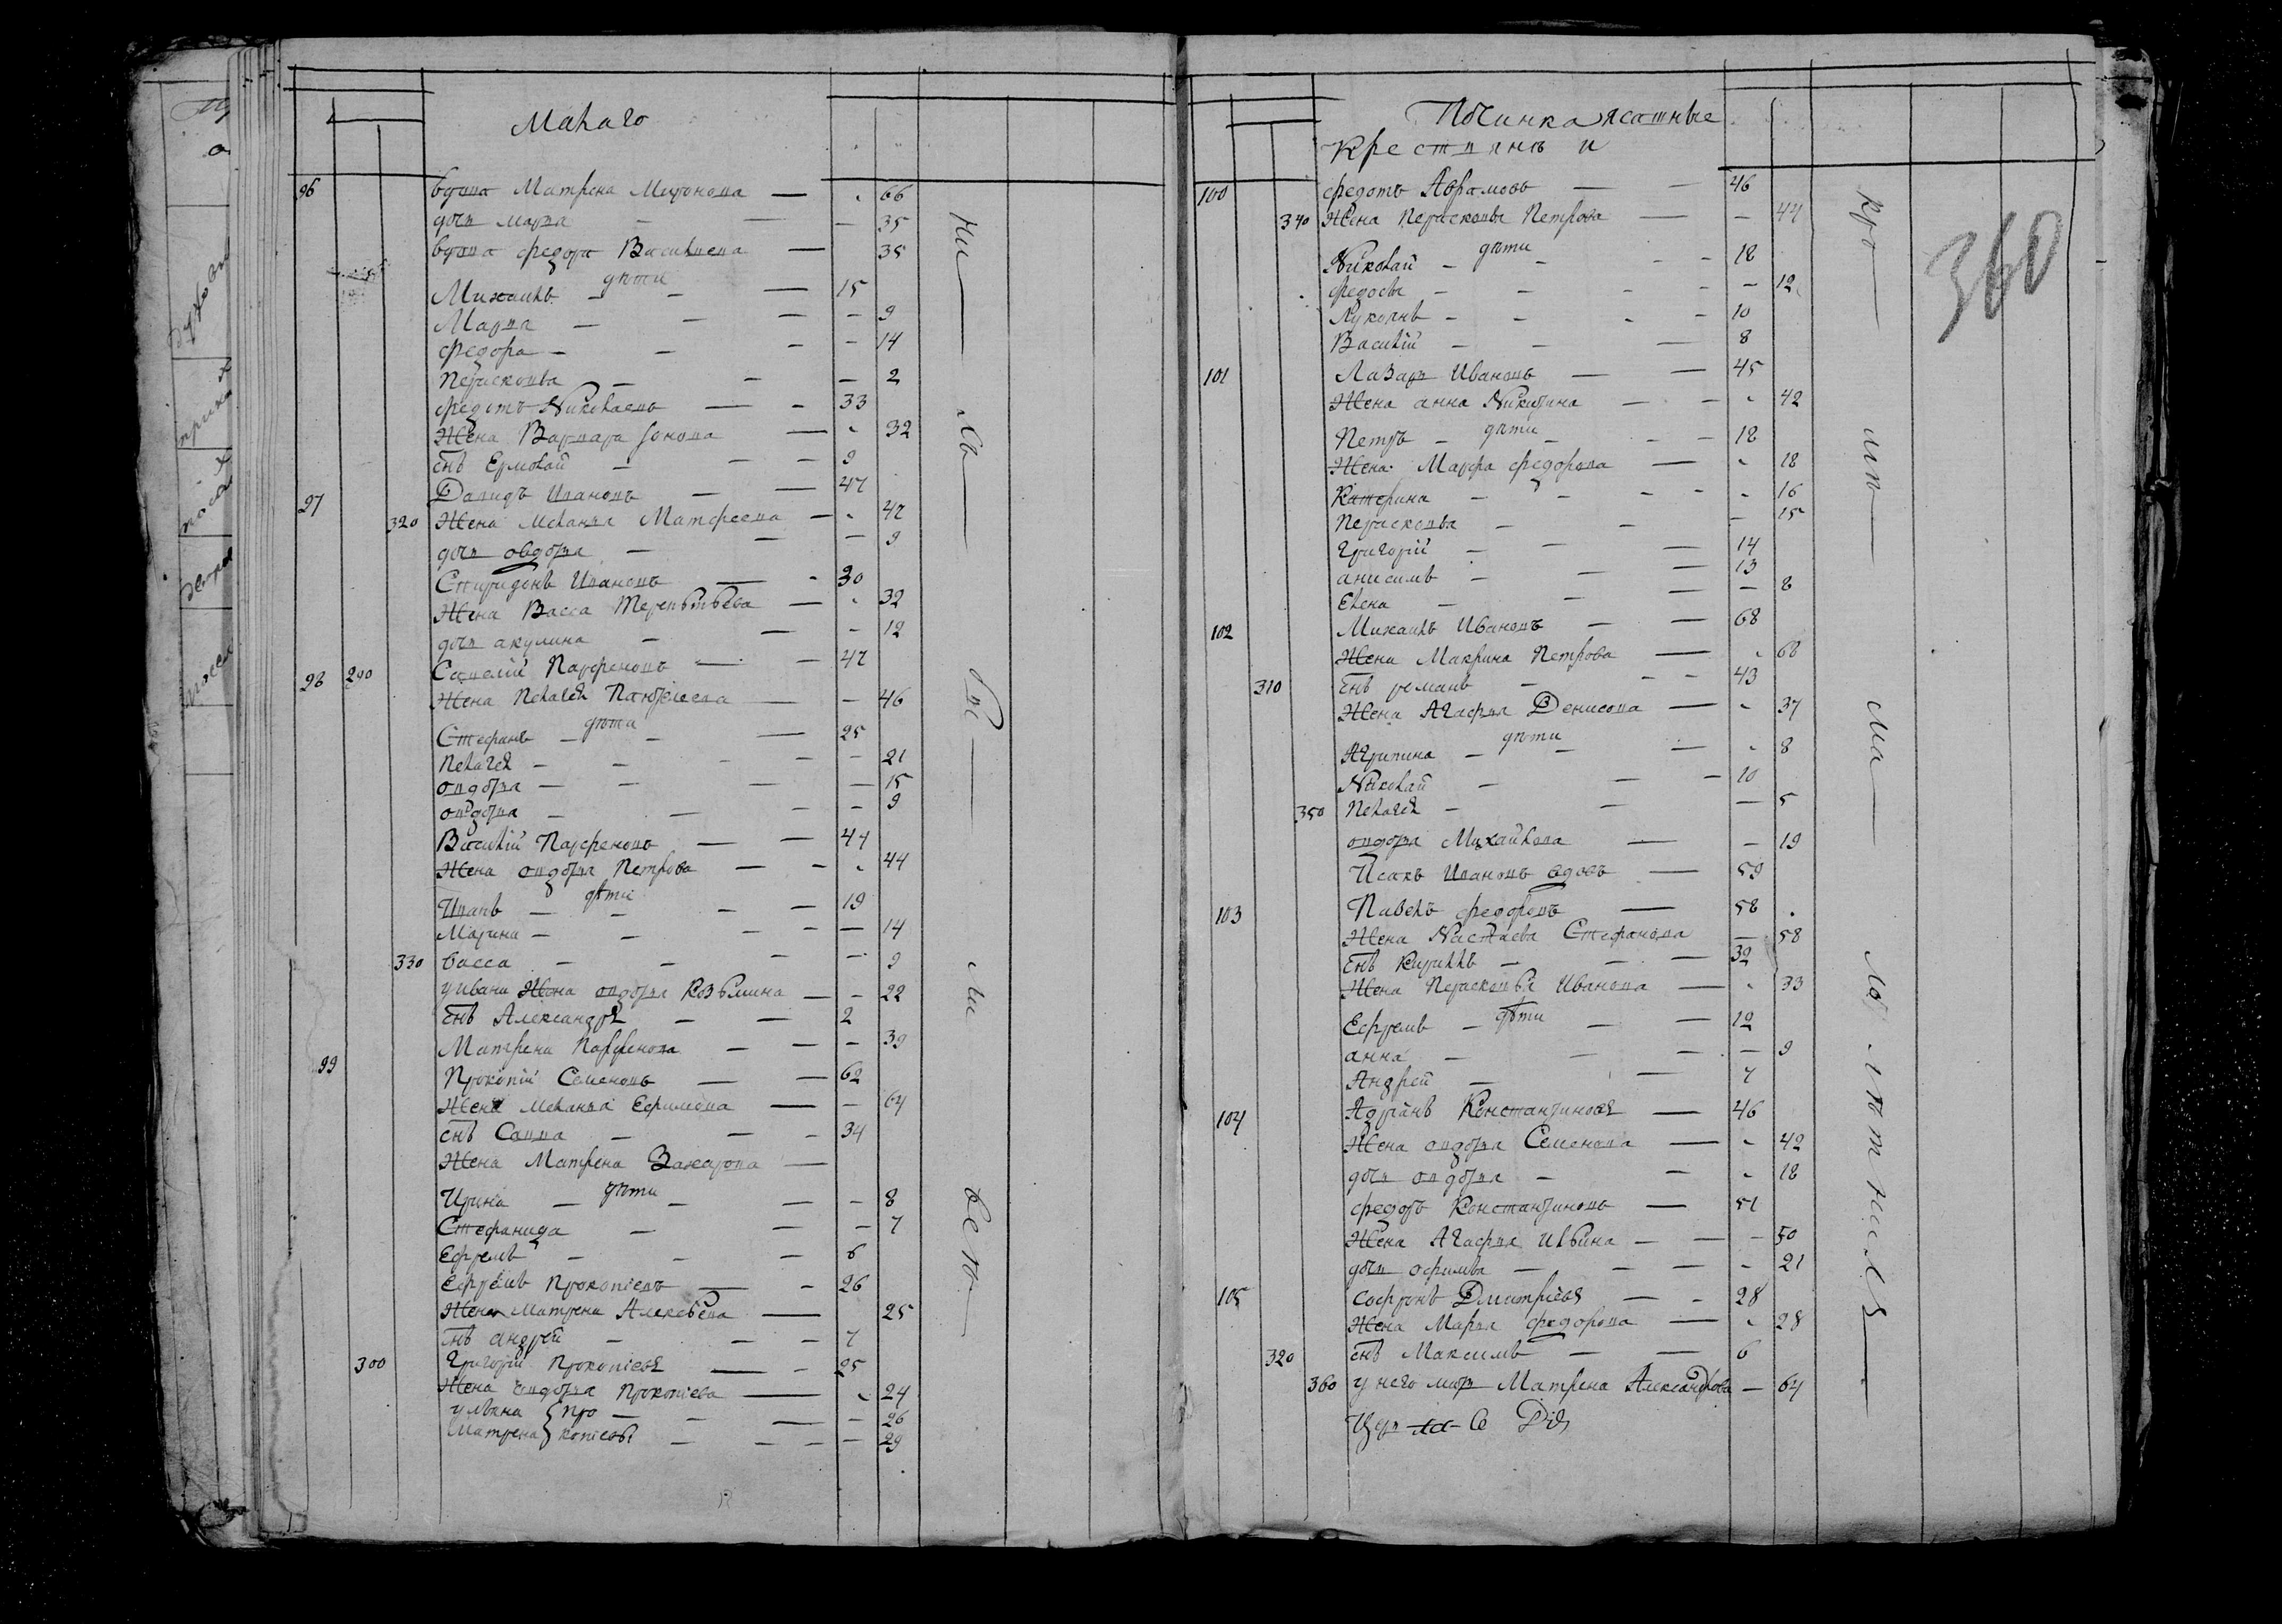 Малаго
96 вдова Матрена Миронова — 66
дочь марва — 35
вдова федора Васильева — 35
дѣти
Михаилъ — 15
Марва — 9
федора — 14
Парасковва — 2
федотъ Николаевъ — 33
Жена Варвара — 32
снъ Ермолай — 9
97 Давидъ Ивановъ — 47
320 Жена Меланья Матфеева — 47
дочь овдотья — 9
Спиридонъ Ивановъ — 30
Жена Васса Терентьева — 32
дочь акулина — 12
98 290 Савелій Парфеновъ — 47
Жена Пелагея — 46
дѣти
Стефанъ — 25
Пелагея — 21
овдотья — 15
овдотья — 9
Василій Парфеновъ — 44
Жена овдотья Петрова — 44
дѣти
Иванъ — 19
Марина — 14
330 васса — 9
у ивана Жена овдотья Козьмина — 22
снъ Александръ — 2
Матрена Парфенова — 39
99 Прокопій Семеновъ — 62
Жена меланья Ефимова — 64
снъ Савва — 34
Жена Матрена Захарова —
дѣти
Ирина — 8
Стефанида — 7
Ефремъ — 6
Ефремъ Прокопіевъ — 26
Жена Матрена Алексѣева — 25
снъ андрей — 7
300 Григорій Прокопіевъ — 25
Жена овдотья Прокопіева — 24
ульяна } про — 26
Матрена } копіевы — 29
ни — са — ры — ли — вст —
Починка ясашные
Крестьянъ и
100 федотъ Аврамовъ — 46
340 Жена Парасковья Петрова — 44
дѣти
Николай — 18
федосья — 12
Лукоянъ — 10
Василій — 8
101 Лазарь Ивановъ — 45
Жена анна Никитина — 42
дѣти
Петръ — 18
Жена Марфа федорова — 18
Катерина — 16
Парасковья — 15
Григорій — 14
анисимъ — 13
Елена — 8
102 Михаилъ Ивановъ — 68
Жена Макрина Петрова — 68
310 снъ романъ — 43
Жена Агафья Денисова — 37
дѣти
Агрипина — 8
Николай — 10
350 Пелагея — 5
овдотья Михайлова — 19
Исакъ Ивановъ вдовъ — 59
103 Павелъ федоровъ — 58
Жена Настасья Стефанова — 58
снъ Кирилъ — 32
Жена Парасковья Иванова — 33
дѣти
Ефремъ — 12
анна — 9
Андрей — 7
104 Адріанъ Константиновъ — 46
Жена овдотья Семенова — 42
дочь овдотья — 18
федотъ Константиновъ — 51
Жена Агафья Ильина — 50
дочь офимья — 21
105 Софронъ Дмитріевъ — 28
Жена Марья федорова — 28
320 снъ Максимъ — 6
360 у него мать Матрена Александрова — 64
360